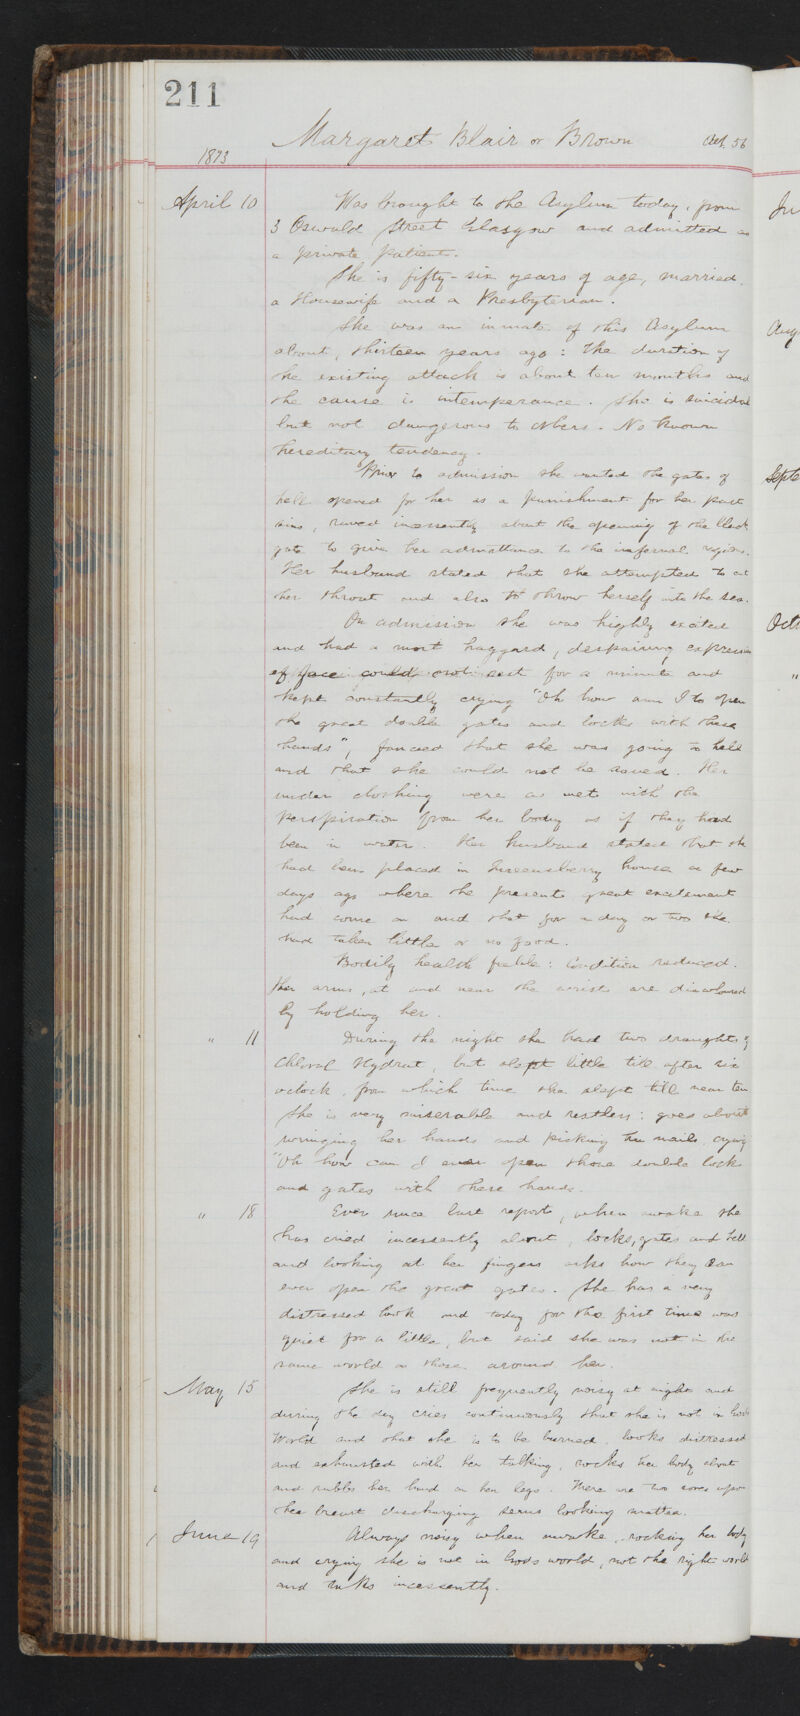 211
Margaret Blair or Brown Aet. 56
1873
April 10 Was brought to the Asylum today, from
3 Oswald Street Glasgow and admitted as
a private patient.
She is fifty-six years of age, married,
a Housewife and a Presbyterian.
She was an inmate of this Asylum
about, thirteen years ago: The duration of
the existing attack is about ten months and
the cause is intemperance. She is suicidal
but not dangerous to others. No known
hereditary tendency.
Prior to admission she wanted the gates of
hell opened for her as a punishment for her past
sins, raved incessantly about the opening of the
gate to give her admittance to the infernal regions.
Her husband stated that she attempted to cut
her throat and also to throw herself into the sea.
On admission she was highly excited
and had a most haggard, despairing expression
of face could not rest for a minute and
kept constantly crying "Oh how am I to open
the great double gates and locks with these
hands", fancied that she was going to hell
and that she could not be saved. Her
under clothing were as wet with the
perspiration from her body as if they had
been in water. Her husband stated that she
had been placed in house a few
days ago where the present great excitement
had come on and that for a day or two she
had taken little or no food.
Bodily health feeble: Condition reduced.
Her arms, at and near the wrist are discoloured
by holding her.
" 11 During the night she had two draughts of
Chloral Hydrat, but slept little till after six
oclock, from which time she slept till near ten
She is very miserable and restless: goes about
wringing her hands and picking her nails, crying
"Oh how can I ever open those double locks
and gates with these hands.
" 18 Ever since last report, when awake she
has cried incessantly about, locks, gates and hell
and looking at her fingers asks how they can
ever open the great gates. She has a very
distressed look and today for the first time was
quiet for a little, but said she was not in the
same world as those around her.
May 15 She is still frequently noisy at night and
during the day cries continuously that she is not in Gods
World and that she is to be burned, looks distressed
and exhausted with her talking, rocks her body about
and rubbs her hand on her legs. There are two sores upon
her breast discharging serus looking matter.
June 19 Always noisy when awake, rocking her body
and crying she is not in Gods world, not the right world
and talks incessently.
Aug
Septe
Octo
"